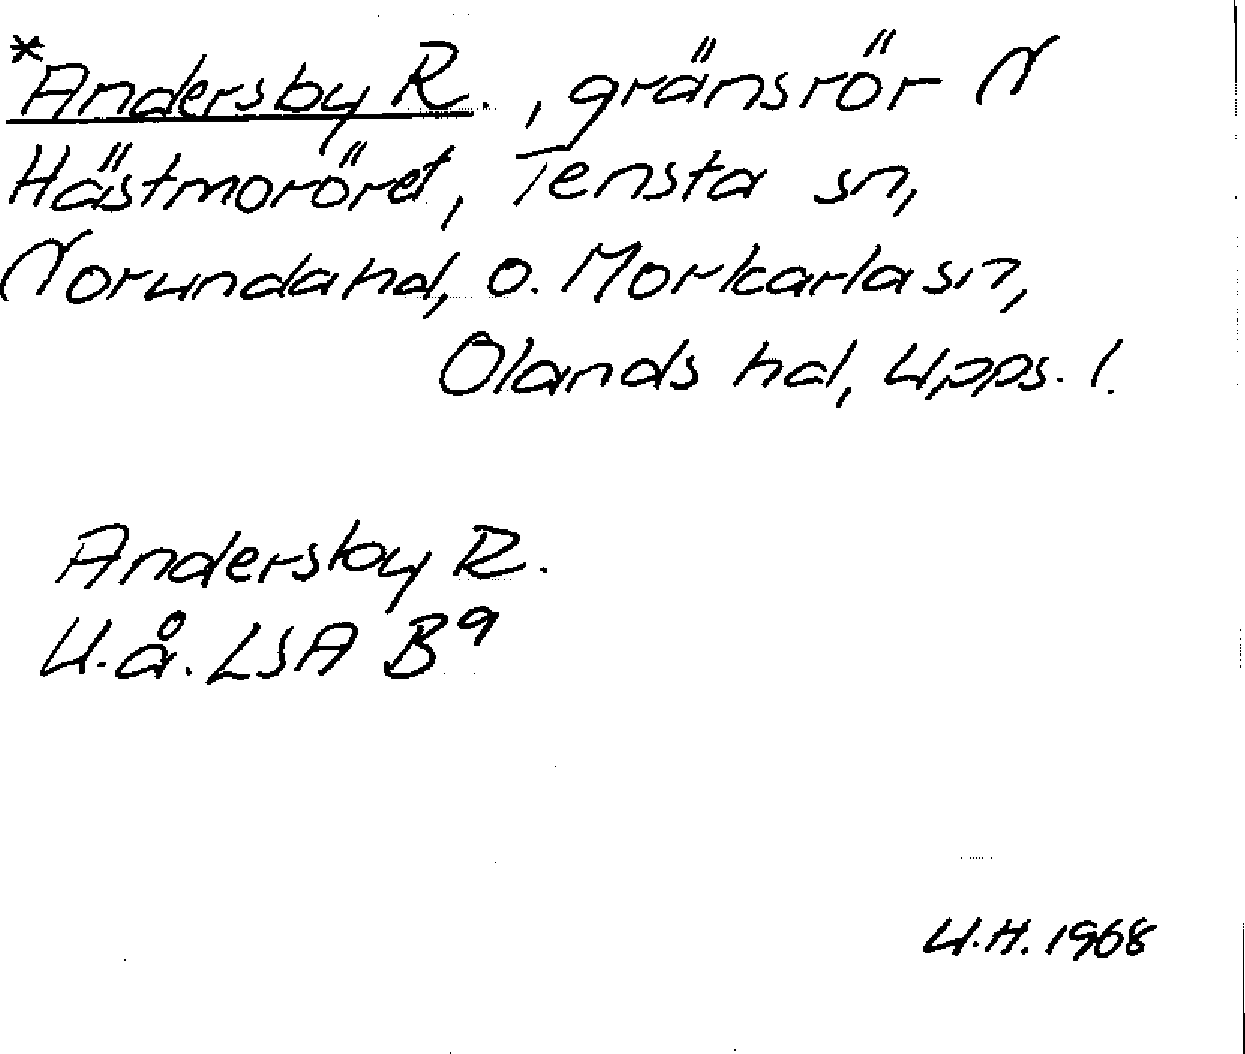 *Andersby R., gränsrör N
Hästmoröret, Tensta sn,
Norunda hd, o. Morkarla sn,
Olands hd, Upps. l.
Andersby R.
U.å. LSA B9
U.H. 1968